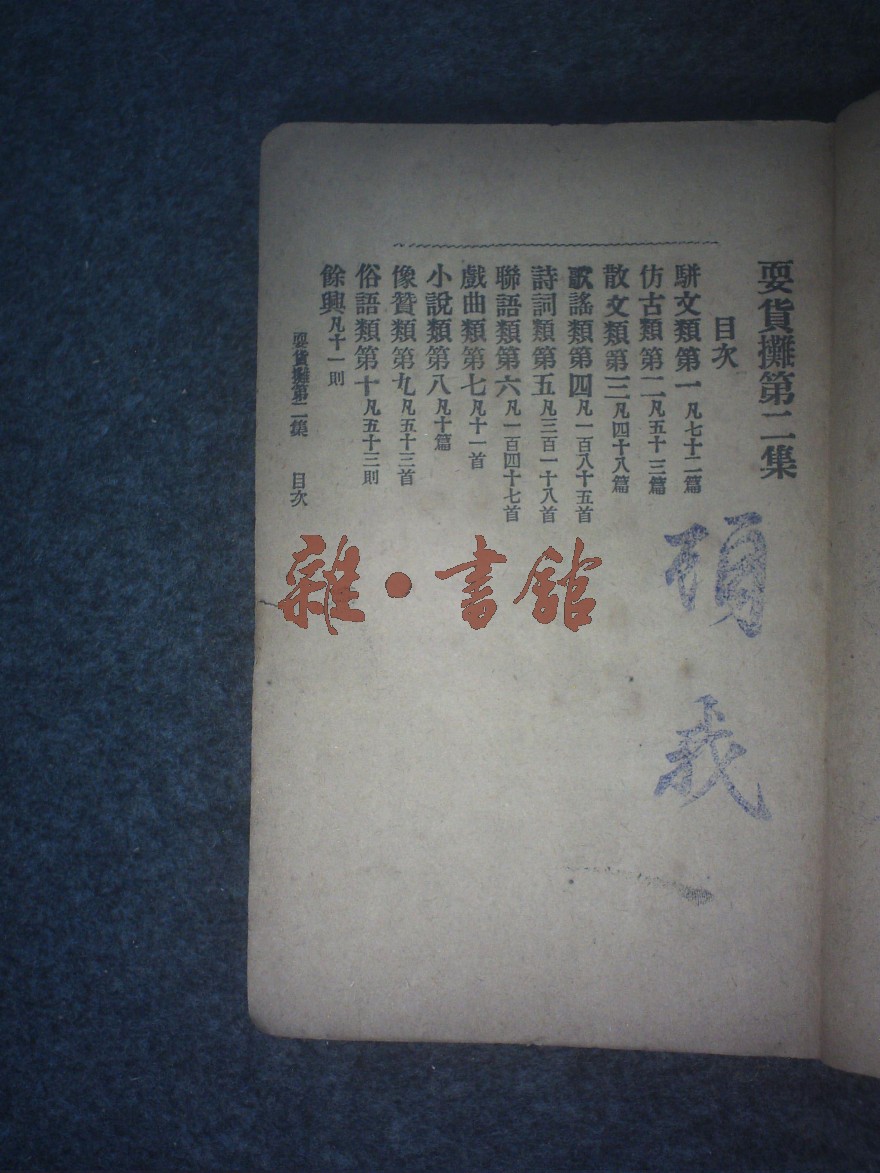 耍貨攤第二集
目次
駢文類第一凡七十二篇
仿古類第二凡五十三篇
散文類第三凡四十八篇
歌謠類第四凡一百八十五首
詩詞類第五凡三百一十八首
聯語類第六凡一百四十七首
戲曲類第七凡十一首
小說類第八凡十篇
像贊類第九凡五十三首
俗語類第十凡五十三則
餘興凡十一則
耍貨攤第二集 目次
雜·書館